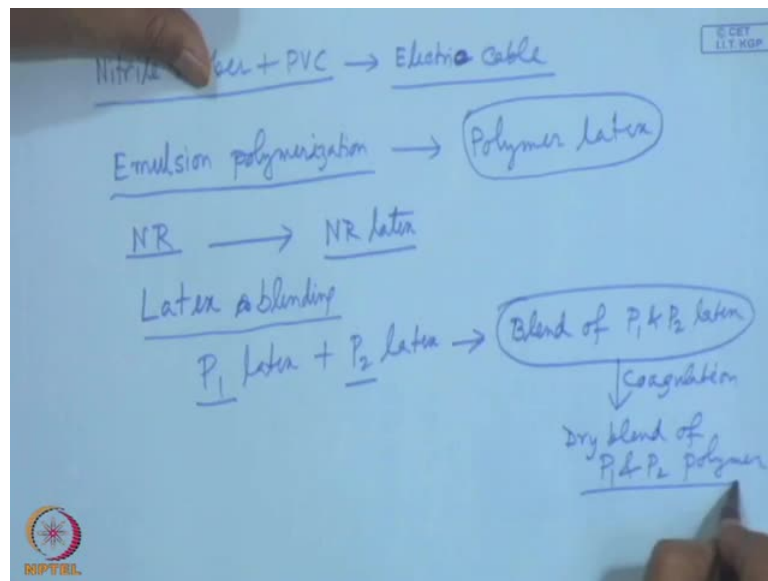 © CET
I.I.T. KGP
Nitrile + PVC → Electric cable
Emulsion polymerization → Polymer latex
NR → NR latex
Latex blending
P1 latex + P2 latex → Blend of P1 & P2 latex
Coagulation
Dry blend of
P1 & P2 polymer
NPTEL